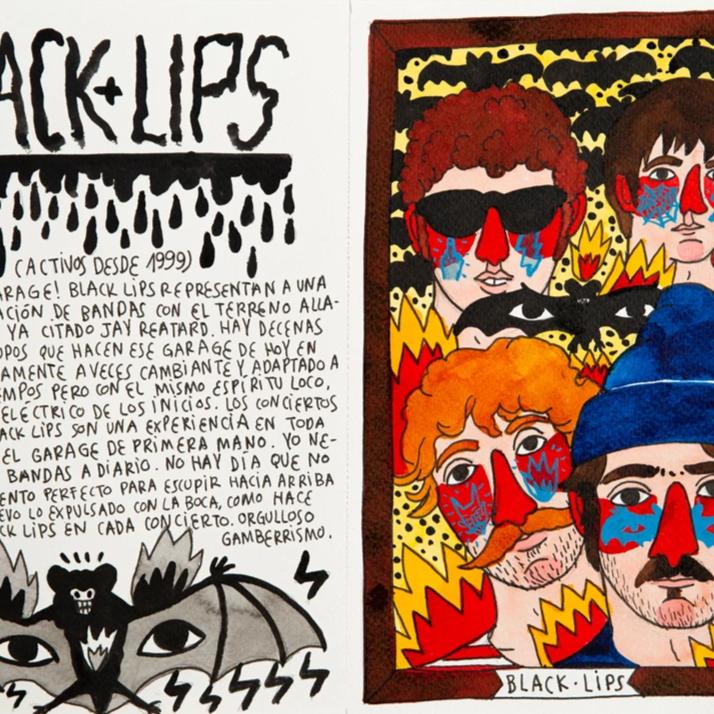 ACK+LIPS
(ACTIVOS DESDE 1999)
ARAGE! BLACK LIPS REPRESENTAN A UNA
ACIÓN DE BANDAS CON EL TERRENO ALLA-
YA CITADO JAY REATARD. HAY DECENAS
UPOS QUE HACEN ESE GARAGE DE HOY EN
AMENTE A VECES CAMBIANTE Y ADAPTADO A
EMPOS PERO CON EL MISMO ESPÍRITU LOCO,
ELÉCTRICO DE LOS INICIOS. LOS CONCIERTOS
ACK LIPS SON UNA EXPERIENCIA EN TODA
EL GARAGE DE PRIMERA MANO. YO NE-
BANDAS A DIARIO. NO HAY DÍA QUE NO
ENTO PERFECTO PARA ESCUPIR HACIA ARRIBA
EVO LO EXPULSADO CON LA BOCA, COMO HACE
CK LIPS EN CADA CONCIERTO. ORGULLOSO
GAMBERRISMO.
BLACK·LIPS